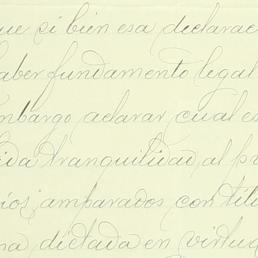 ue si bien esa declarac
aber fundamento legal
mbargo, aclarar, cual es
ida tranquilidad al pr
ios, amparados con titu
na dictada en virtud